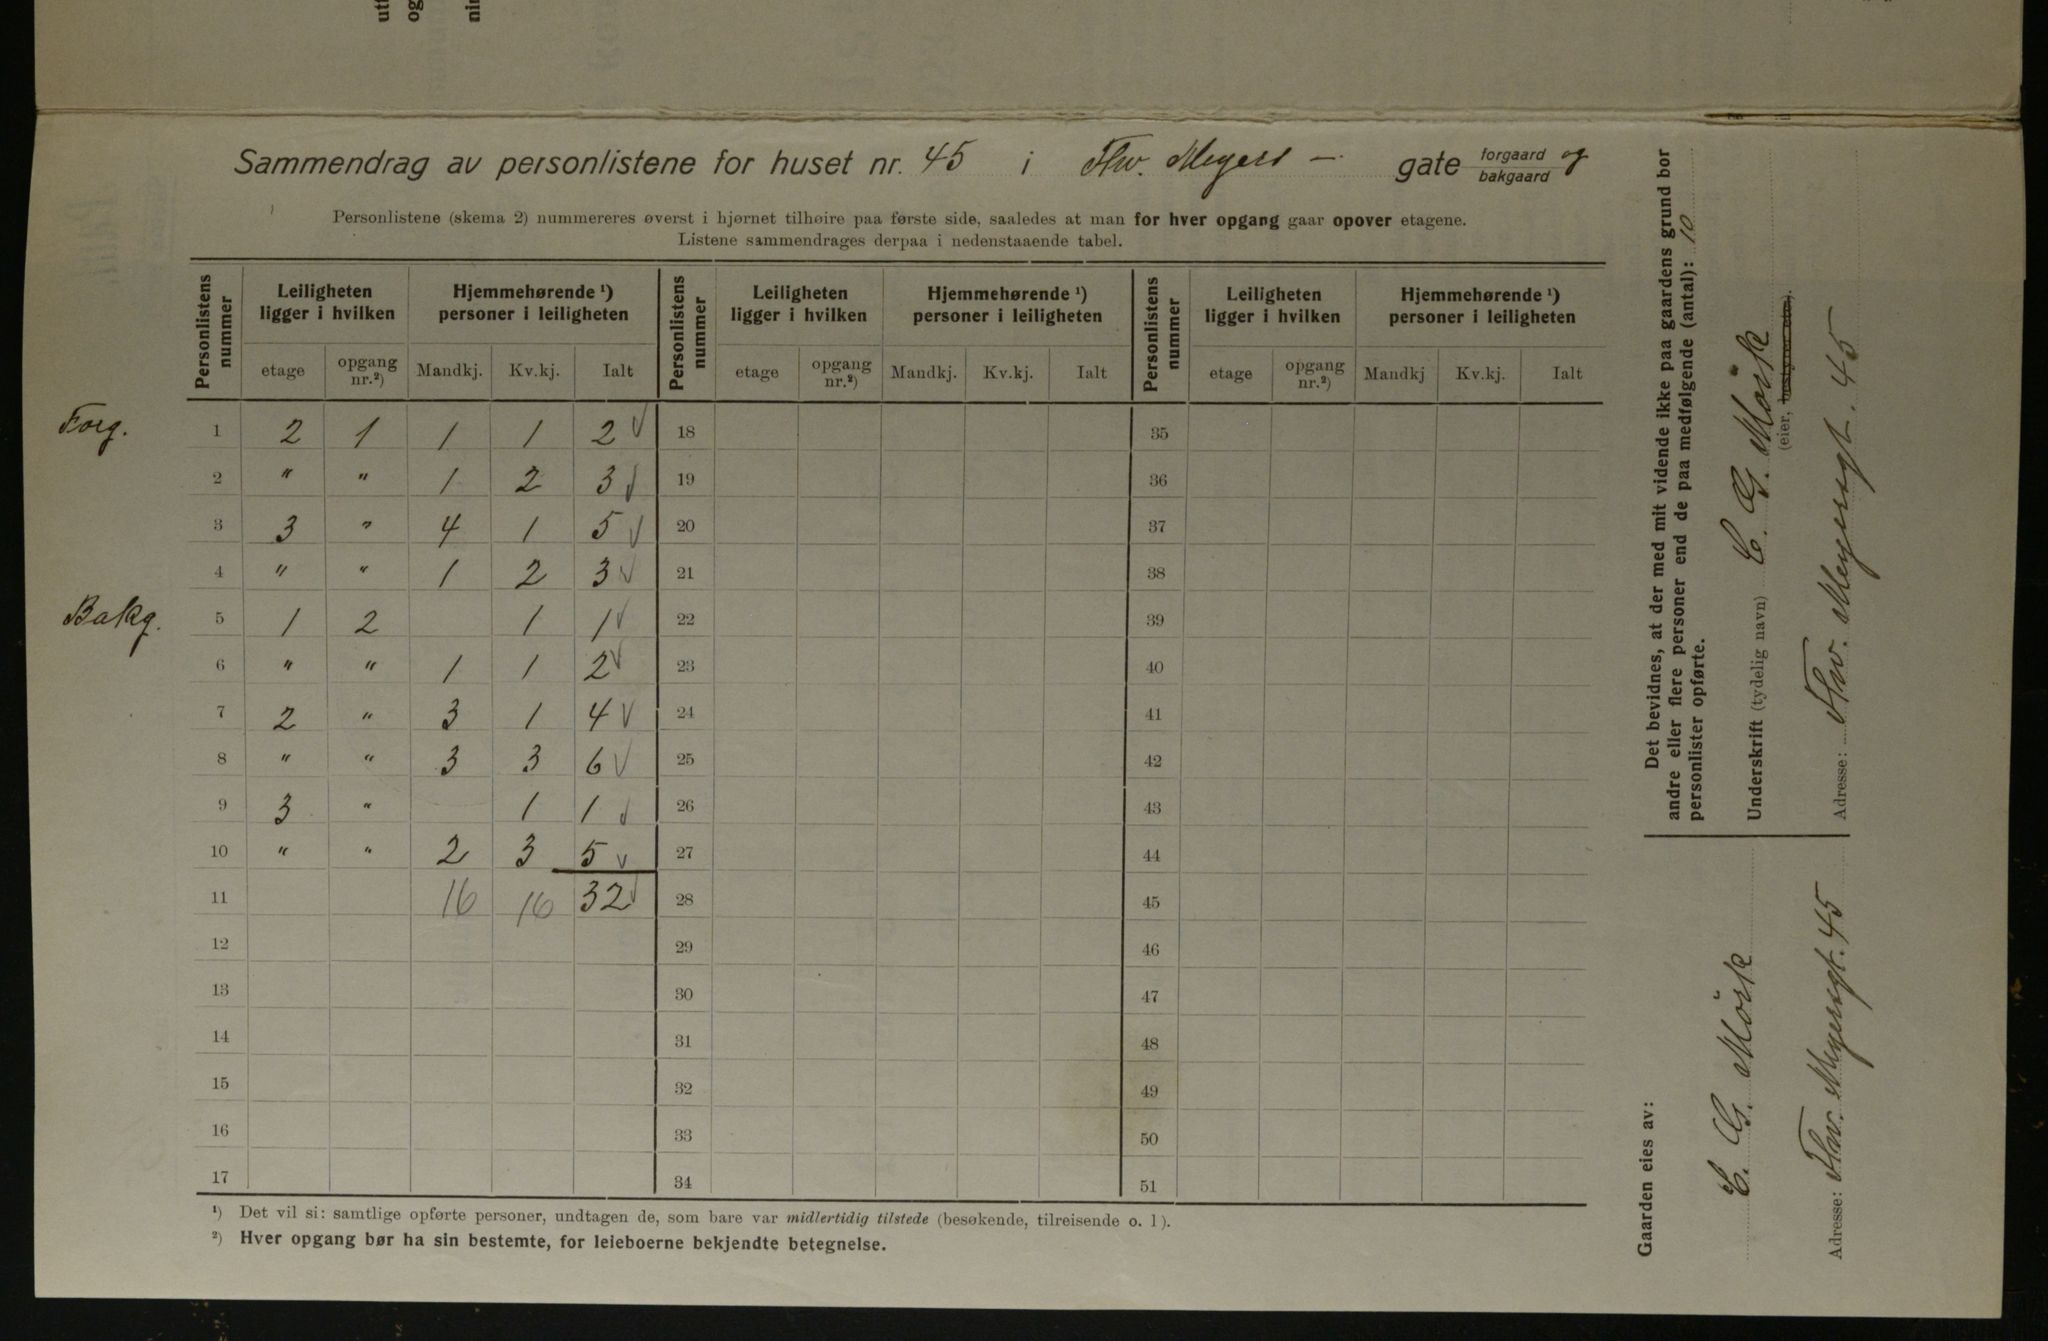 Sammendrag av personlistene for huset nr. 45 i Thv. Meyers — gate forgaard og bakgaard
Personlistene (skema 2) nummereres øverst i hjørnet tilhøire paa første side, saaledes at man for hver opgang gaar opover etagene.
Listene sammendrages derpaa i nedenstaaende tabel.
Personlistens nummer | Leiligheten ligger i hvilken | Hjemmehørende ¹) personer i leiligheten | Personlistens nummer | Leiligheten ligger i hvilken | Hjemmehørende ¹) personer i leiligheten | Personlistens nummer | Leiligheten ligger i hvilken | Hjemmehørende ¹) personer i leiligheten
etage | opgang nr.²) | Mandkj. | Kv.kj. | Ialt | etage | opgang nr.²) | Mandkj. | Kv.kj. | Ialt | etage | opgang nr.²) | Mandkj | Kv.kj. | Ialt
Forg. 1 2 1 1 1 2 √ 18 35
2 " " 1 2 3 √ 19 36
3 3 " 4 1 5 √ 20 37
4 " " 1 2 3 √ 21 38
Bakg. 5 1 2 1 1 √ 22 39
6 " " 1 1 2 √ 23 40
7 2 " 3 1 4 √ 24 41
8 " " 3 3 6 √ 25 42
9 3 " 1 1 √ 26 43
10 " " 2 3 5 √ 27 44
11 16 16 32 √ 28 45
12 29 46
13 30 47
14 31 48
15 32 49
16 33 50
17 34 51
¹) Det vil si: samtlige opførte personer, undtagen de, som bare var midlertidig tilstede (besøkende, tilreisende o. l).
²) Hver opgang bør ha sin bestemte, for leieboerne bekjendte betegnelse.
Det bevidnes, at der med mit vidende ikke paa gaardens grund bor
andre eller flere personer end de paa medfølgende (antal): 10
personlister opførte.
Underskrift (tydelig navn) C. G. Mörk
(eier,
Adresse: Thv. Meyersgt. 45
Gaarden eies av:
C. G. Mörk
Adresse: Thv. Meyersgt. 45